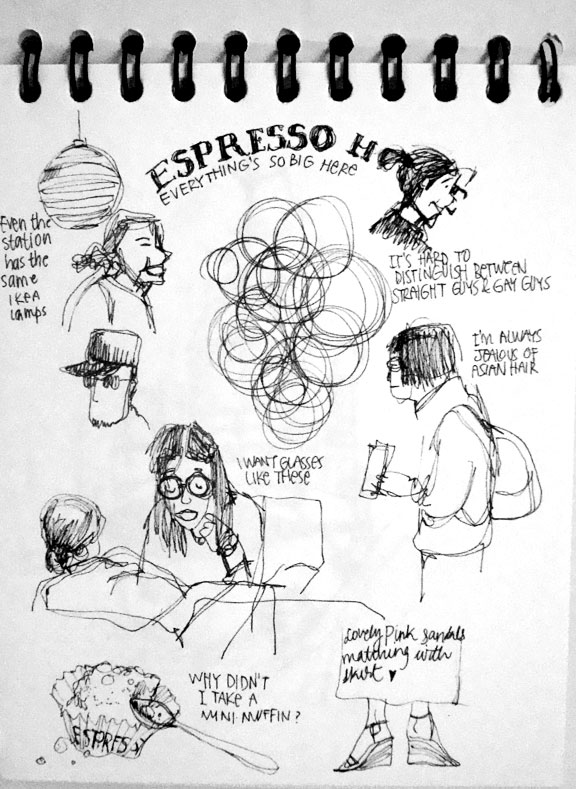 ESPRESSO HO
EVERYTHING'S SO BIG HERE
Even the
station
has the
same
IKEA
lamps
IT'S HARD TO
DISTINGUISH BETWEEN
STRAIGHT GUYS & GAY GUYS
I'M ALWAYS
JEALOUS OF
ASIAN HAIR
I WANT GLASSES
LIKE THESE
Lovely Pink sandals
matching with
skirt ♥
WHY DIDN'T
I TAKE A
MINI MUFFIN?
ESPRES